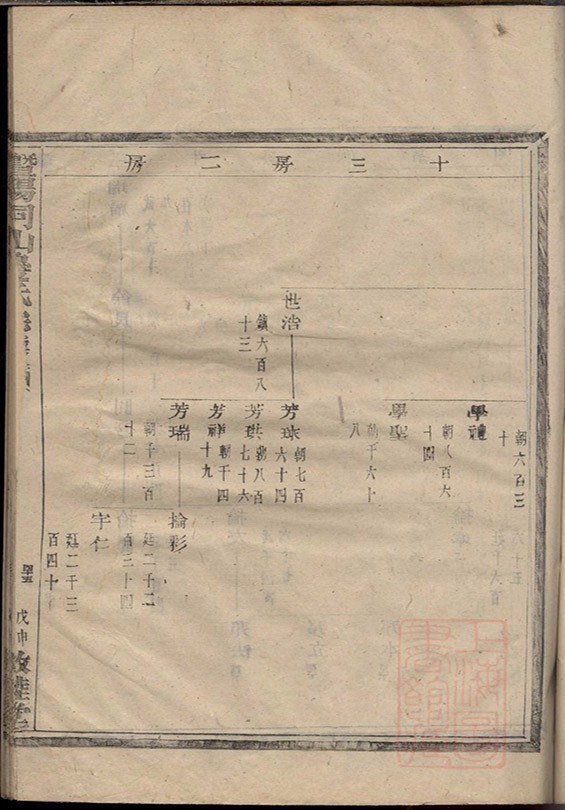 十三房二房
朝六百三
十
學禮
朝八百六
十四
學聖
朝千六十
八
世治
鎮六百八
十三
芳球
朝七百
六十四
芳珙
朝八百
七十六
芳祥
朝千四
十九
芳瑞
朝千三百
十二
掄彩
廷二千二
百三十四
宇仁
廷二千三
百四十
暨陽同山
戊申